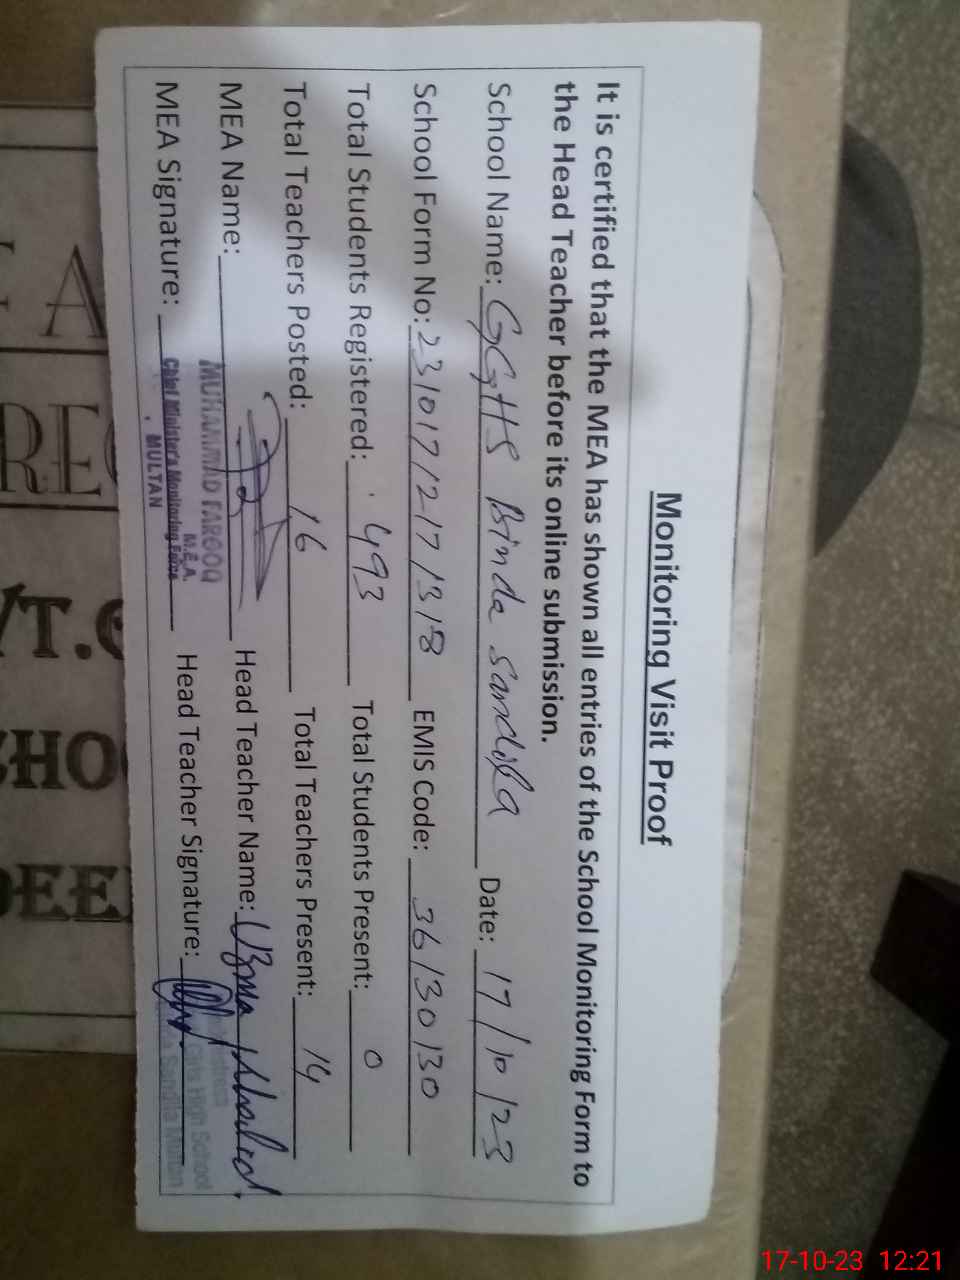 Monitoring Visit Proof
It is certified that the MEA has shown all entries of the School Monitoring Form to
the Head Teacher before its online submission.
School Name: GGHS Binda Sandila Date: 17/10/23
School Form No: 23101712171318 EMIS Code: 36130130
Total Students Registered: 493 Total Students Present: 0
Total Teachers Posted: 16 Total Teachers Present: 14
MEA Name: Head Teacher Name: Uzma Khalid
MUHAMMAD FAROOQ
M.E.A.
MEA Signature: Head Teacher Signature:
Chief Minister's Monitoring Force
MULTAN
Girls High School
Sandila Multan
17-10-23 12:21